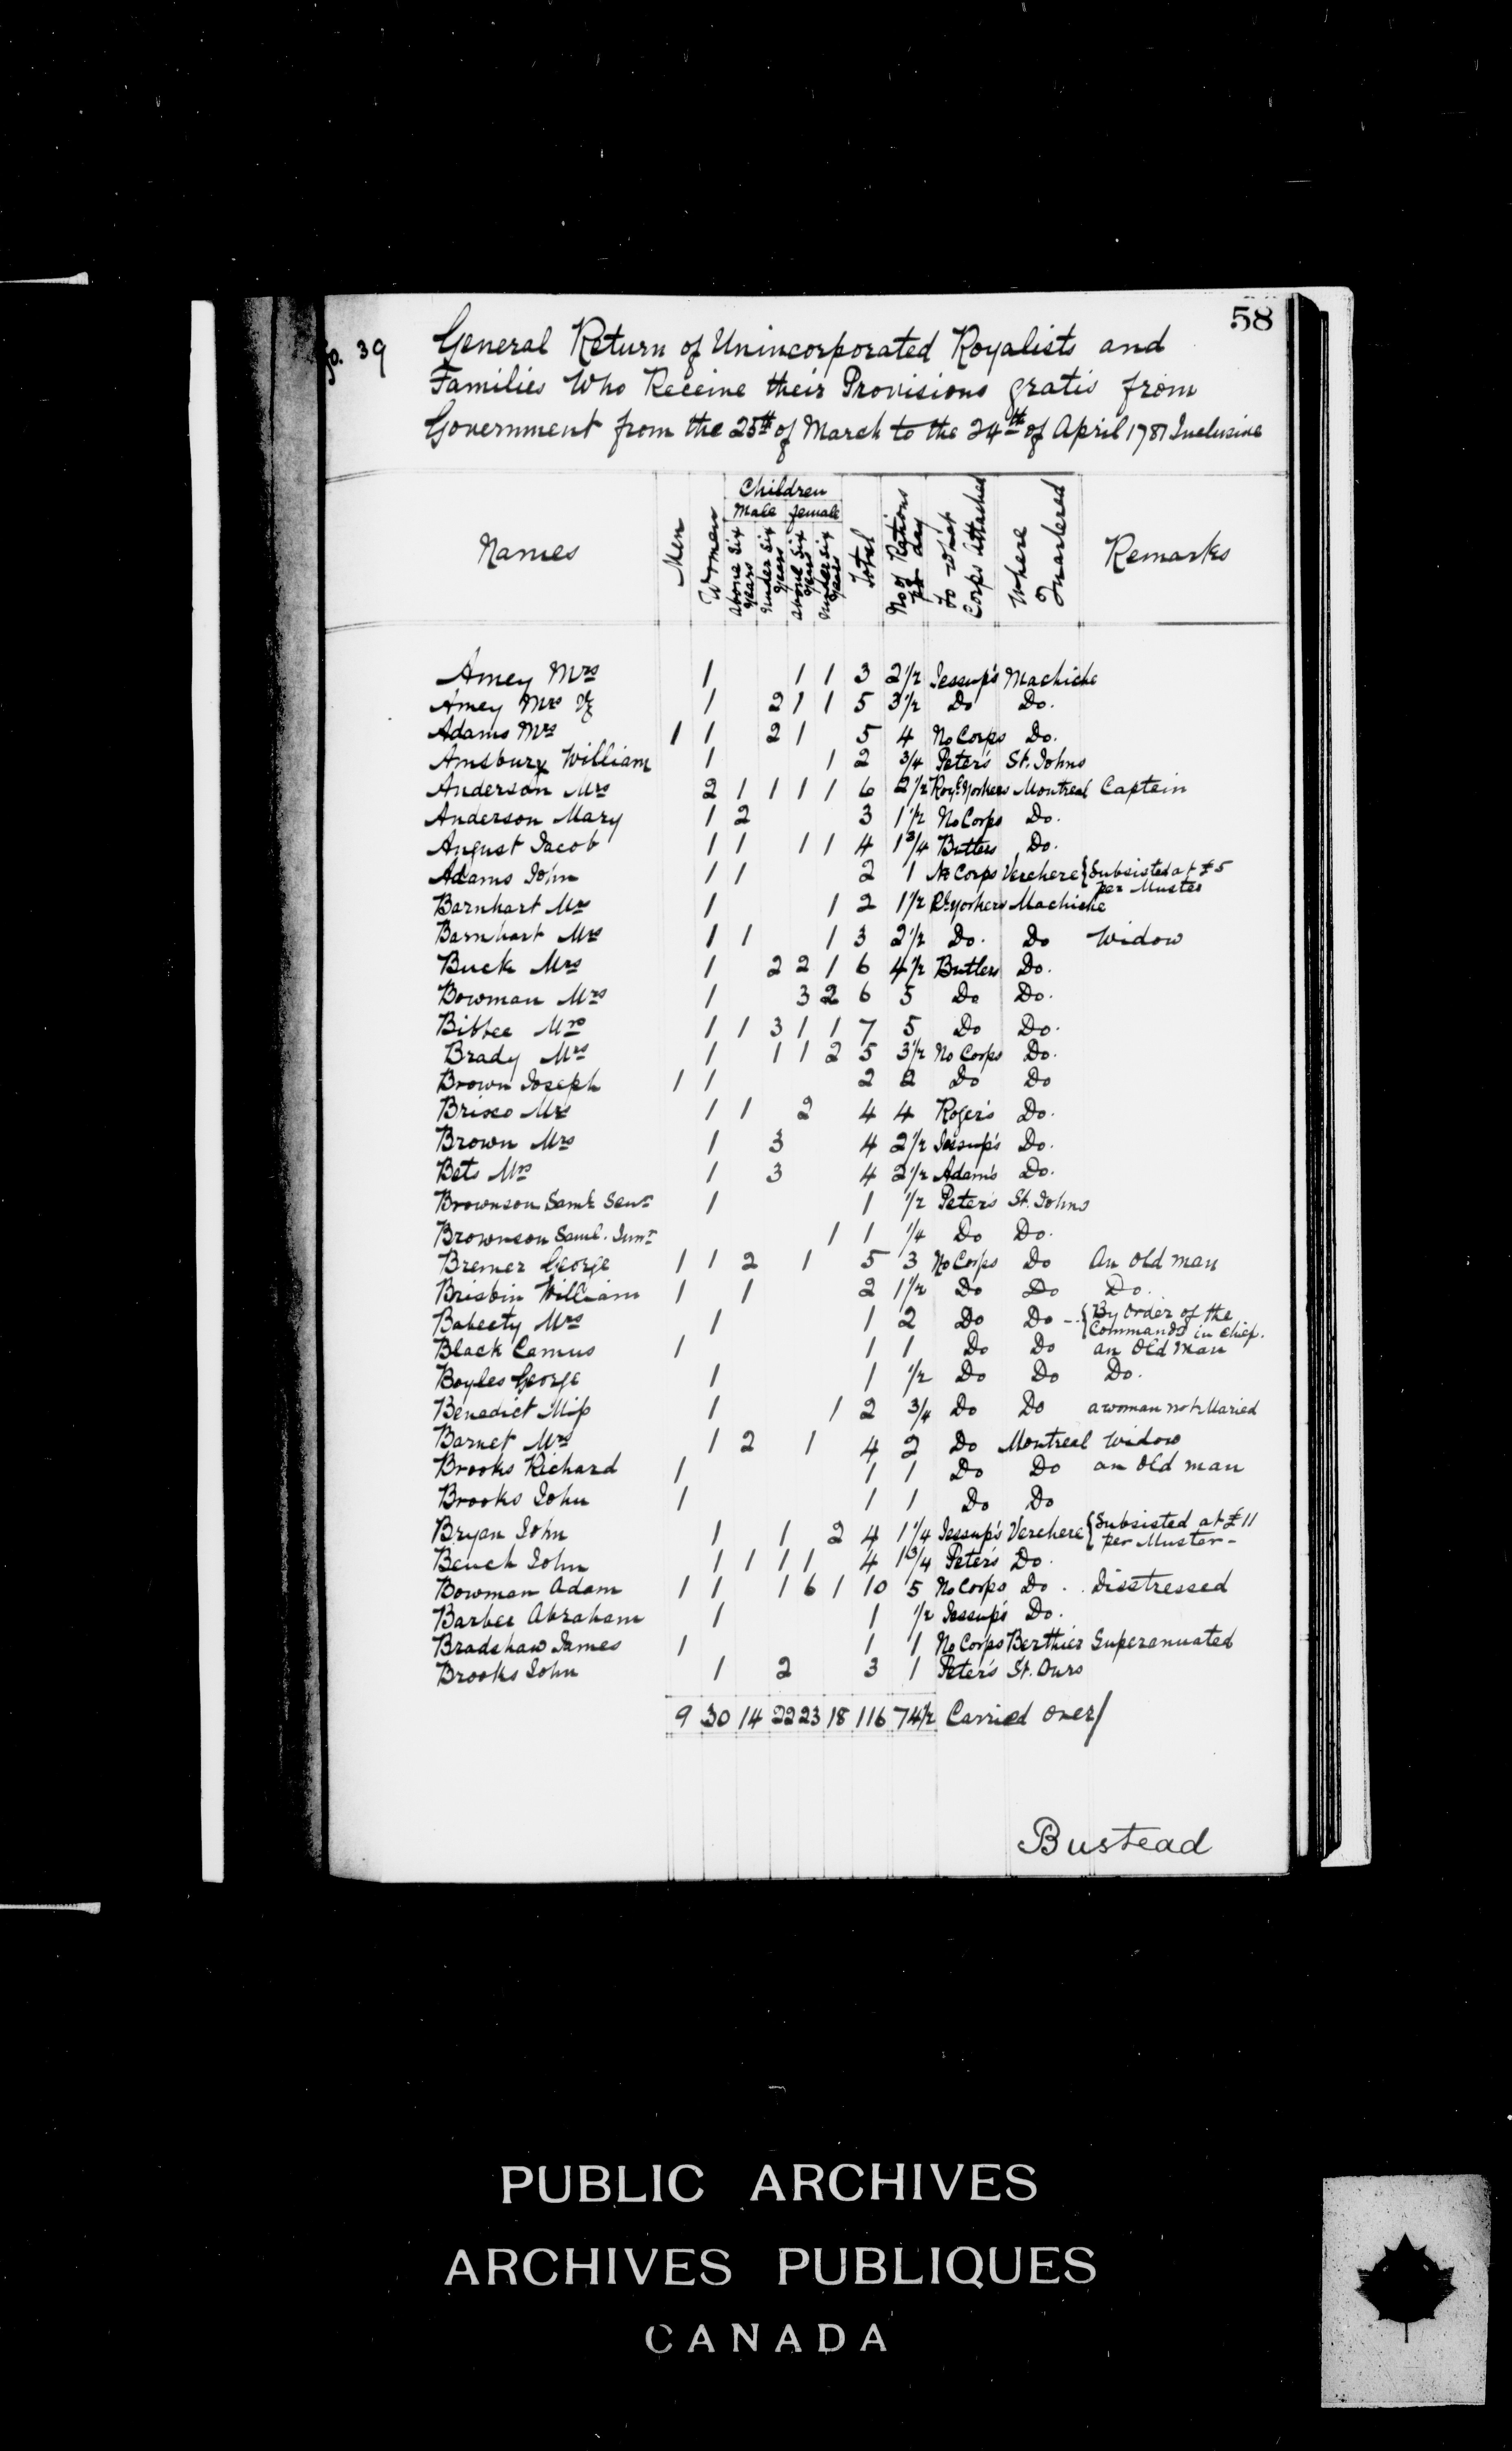 58
fo. 39
General Return of Unincorporated Royalists and
Families Who Receive their Provisions gratis from
Government from the 25th of March to the 24th of April 1781 Inclusive
Names Men Women Children Male above six years under six years female above six years under six years Total No of Rations pr day To what Corps Attached Where Quartered Remarks
Amey Mrs 1 1 1 3 2 1/2 Jessup's Machiche
Amey Mrs 1 2 1 1 5 3 1/2 Do Do.
Adams Mrs 1 1 2 1 5 4 No Corps Do.
Amsbury William 1 1 2 3/4 Peter's St. Johns
Anderson Mrs 2 1 1 1 1 6 2 1/2 Royl Yorkers Montreal Captain
Anderson Mary 1 2 3 1 1/2 No Corps Do.
August Jacob 1 1 1 1 4 1 3/4 Butlers Do.
Adams John 1 1 2 1 No Corps Verchere {Subsisted at £5
per Muster
Barnhart Mrs 1 1 2 1 1/2 Rl Yorkers Machiche
Barnhart Mrs 1 1 1 3 2 1/2 Do. Do Widow
Buck Mrs 1 2 2 1 6 4 1/2 Butlers Do.
Bowman Mrs 1 3 2 6 5 Do Do.
Bibbee Mrs 1 1 3 1 1 7 5 Do Do.
Brady Mrs 1 1 1 2 5 3 1/2 No Corps Do.
Brown Joseph 1 1 2 2 Do Do
Brisco Mrs 1 1 2 4 4 Roger's Do.
Brown Mrs 1 3 4 2 1/2 Jessup's Do.
Bets Mrs 1 3 4 2 1/2 Adam's Do.
Brownson Saml Senr 1 1 1/2 Peter's St. Johns
Brownson Saml. Junr 1 1 1/4 Do Do.
Bremer George 1 1 2 1 5 3 No Corps Do An Old man
Brisbin William 1 1 2 1 1/2 Do Do Do.
Baheety Mrs 1 1 2 Do Do - {By Order of the
Commands in Chief.
Black Camus 1 1 1 Do Do an Old Man
Boyles George 1 1 1/2 Do Do Do.
Benedict Miss 1 1 2 3/4 Do Do a woman not Maried
Barnet Mrs 1 2 1 4 2 Do Montreal Widow
Brooks Richard 1 1 1 Do Do an Old man
Brooks John 1 1 1 Do Do
Bryan John 1 1 2 4 1 1/4 Jessup's Verchere {Subsisted at £11
per Muster -
Beuch John 1 1 1 1 4 1 3/4 Peter's Do.
Bowman Adam 1 1 1 6 1 10 5 No Corps Do. Disstressed
Barber Abraham 1 1 1/2 Jessup's Do.
Bradshaw James 1 1 1 No Corps Berthier Superanuated
Brooks John 1 2 3 1 Peter's St. Ours
9 30 14 22 23 18 116 74 1/2 Carried over/
Bustead
PUBLIC ARCHIVES
ARCHIVES PUBLIQUES
CANADA